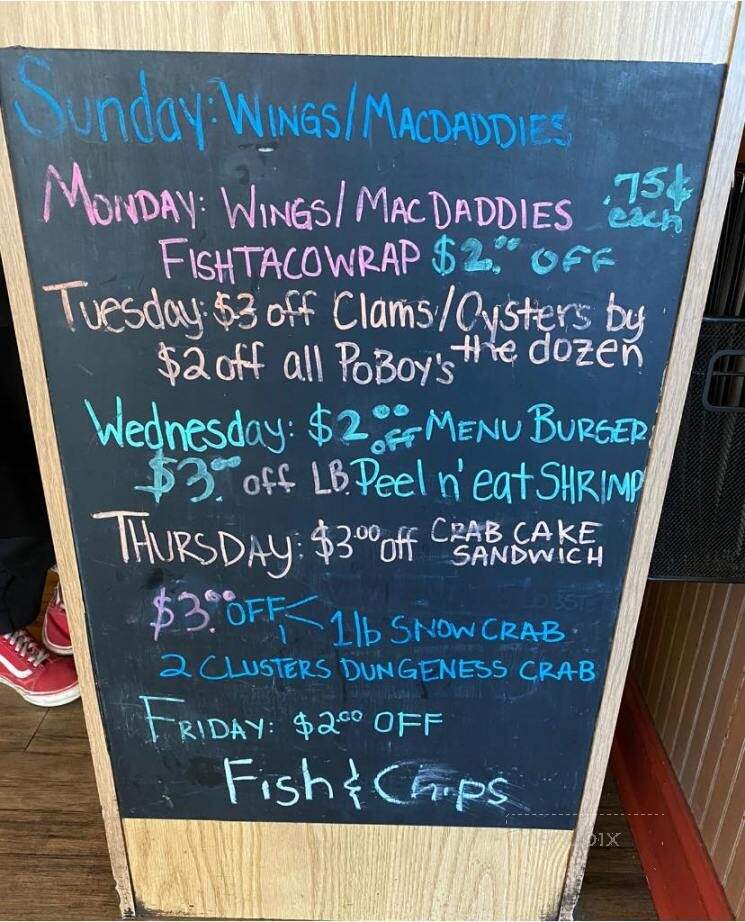 Sunday: WINGS/MACDADDIES
MONDAY: WINGS/MACDADDIES .75¢ each
FISHTACOWRAP $2.00 OFF
Tuesday: $3 off Clams/Oysters by
the dozen
$2 off all PoBoy's
Wednesday: $2.00 off MENU BURGER
$3.00 off LB. Peel n' eat SHRIMP
THURSDAY: $3.00 off CRAB CAKE
SANDWICH
$3.00 OFF < 1lb SNOW CRAB
2 CLUSTERS DUNGENESS CRAB
FRIDAY: $2.00 OFF
Fish & Chips